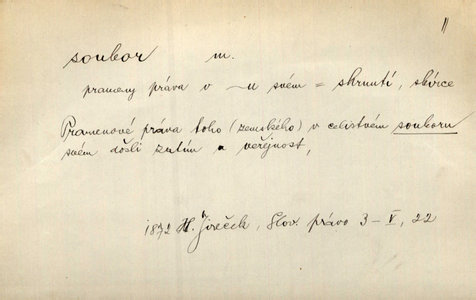 "
soubor m.
prameny práva v ~u svém = shrnutí, sbírce
Pramenové práva toho (zemského) v celistvém souboru
svém došli zatím u veřejnost,
1872 H. Jireček, Slov. právo 3–V, 22